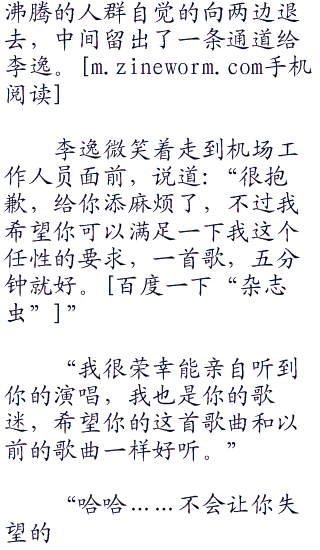 沸腾的人群自觉的向两边退
去，中间留出了一条通道给
李逸。[m.zineworm.com手机
阅读]
李逸微笑着走到机场工
作人员面前，说道：“很抱
歉，给你添麻烦了，不过我
希望你可以满足一下我这个
任性的要求，一首歌，五分
钟就好。[百度一下“杂志
虫”]”
“我很荣幸能亲自听到
你的演唱，我也是你的歌
迷，希望你的这首歌曲和以
前的歌曲一样好听。”
“哈哈……不会让你失
望的